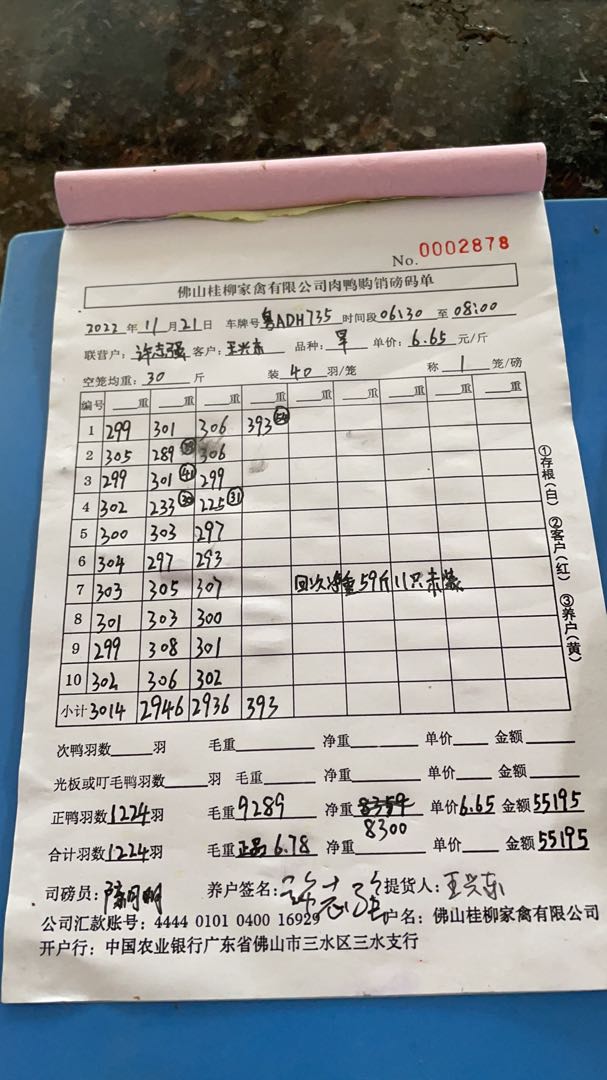 No. 0002878
佛山桂柳家禽有限公司肉鸭购销磅码单
2022 年 11 月 21 日 车牌号 粤ADH735 时间段 06:30 至 08:00
联营户: 许志强 客户: 王兴东 品种: 单价: 6.65 元/斤
空笼均重: 30 斤 装 40 羽/笼 称 1 笼/磅
编号 重 重 重 重 重 重 重 重
1 299 301 306 393 54
2 305 289 306
3 299 301 41 299
4 302 233 30 225 31
5 300 303 297
6 304 297 293
7 303 305 307 回次净重59斤11只未装
8 301 303 300
9 299 308 301
10 302 306 302
小计 3014 2946 2936 393
①存根(白) ②客户(红) ③养户(黄)
次鸭羽数 羽 毛重 净重 单价 金额
光板或叮毛鸭羽数 羽 毛重 净重 单价 金额
正鸭羽数 1224 羽 毛重 9289 净重 8359 单价 6.65 金额 55195
8300
合计羽数 1224 羽 毛重 正品 6.78 净重 单价 金额 55195
司磅员: 养户签名: 许志强 提货人: 王兴东
公司汇款账号: 4444 0101 0400 16929 户名: 佛山桂柳家禽有限公司
开户行: 中国农业银行广东省佛山市三水区三水支行